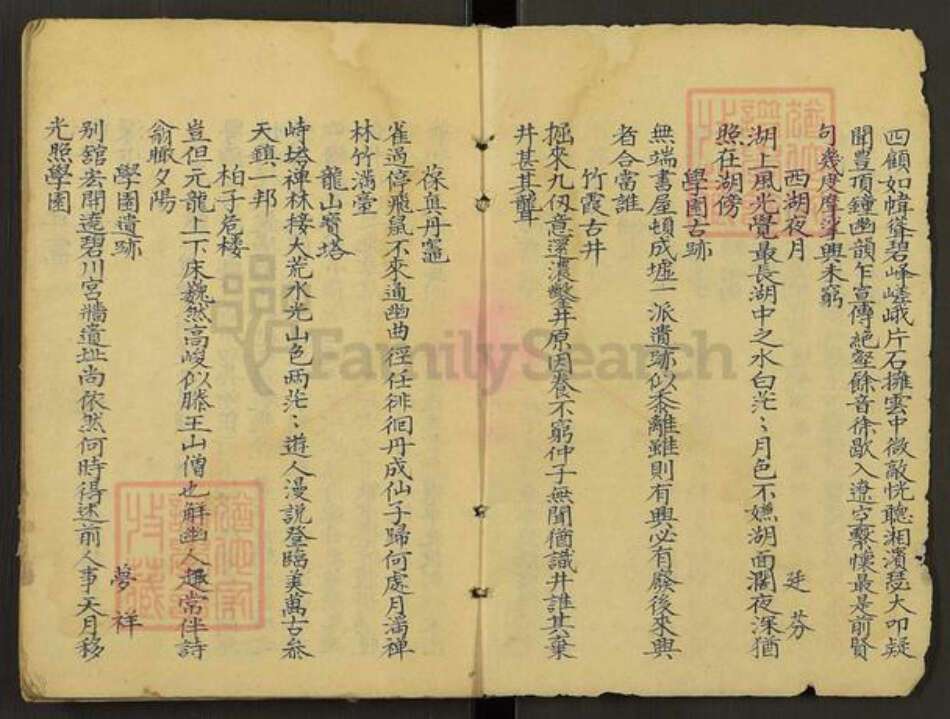 四顧如幃聳碧峰嵯峨片石擁雲中微敲恍聽湘濱瑟大叩疑
聞豊頂鐘幽韻乍宣傳絕壑餘音徐歇入遼空繫懷最是前賢
句幾度摩挲興未窮
西湖夜月
廷芬
湖上風光覺最長湖中之水白茫〻月色不嫌湖面濶夜深猶
照在湖傍
學圃古跡
無端書屋頓成墟一派遺跡似黍離雖則有興必有廢後來興
者合當誰
竹霞古井
掘來九仞意還濃鑿井原因養不窮仲子無聞猶識井誰其棄
井甚其聾
葆真丹竈
雀過停飛鼠不來通幽曲徑任徘徊丹成仙子歸何處月滿禪
林竹滿堂
龍山寶塔
峙塔禪林接大荒水光山色兩茫〻遊人漫說登臨美萬古叅
天鎮一邦
柏子危樓
豈但元龍上下床巍然高峻似滕王山僧也觧幽人趣常伴詩
翁瞰夕陽
學圃遺跡
夢祥
別舘宏開遶碧川宮牆遺址尚依然何時得述前人事天月移
光照學圃
FamilySearch